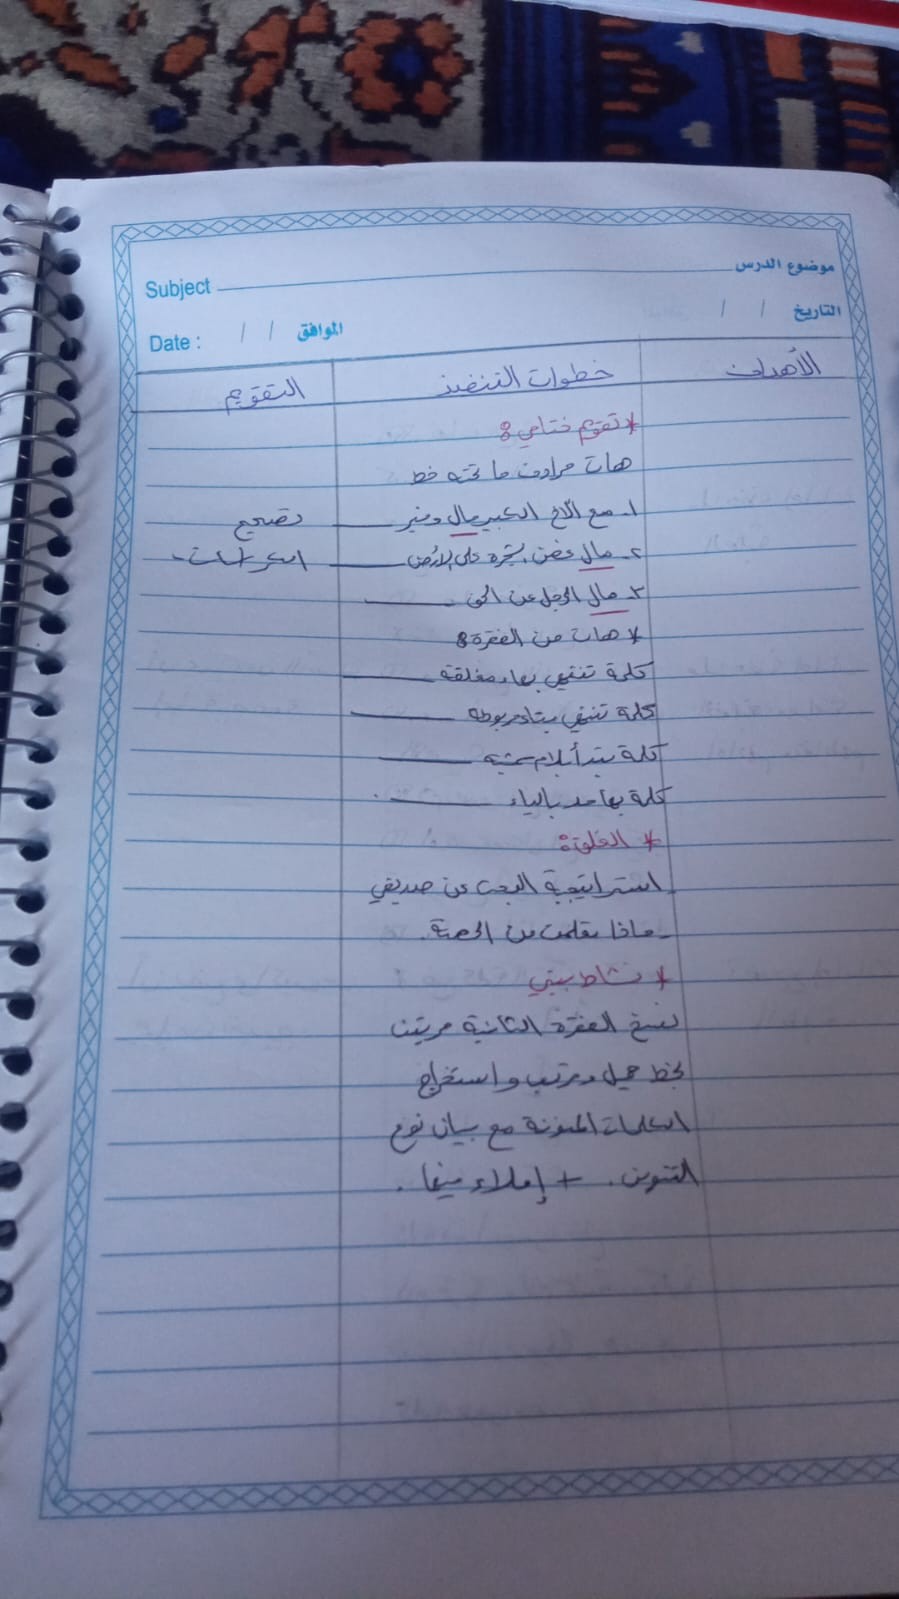 موضوع الدرس Subject
التاريخ / / الموافق / / Date :
الأهداف خطوات التنفيذ التقويم
* تقويم ختامي :
هات مرادف ما تحته خط
١- مع الأخ الكبير مال وفير تصحيح
٢- مال غصن الشجرة على الأرض الكراسات.
٣- مال الرجل عن الحق
* هات من الفقرة :
كلمة تنتهي بهاء مغلقة
كلمة تنتهي بتاء مربوطة
كلمة تبدأ بلام شمسية
كلمة بها مد بالياء .
* الغلق :
استراتيجية البحث عن صديقي
- ماذا تعلمت من الحصة.
* نشاط بيتي
نسخ الفقرة الثانية مرتين
بخط جميل ومرتب واستخراج
الكلمات المنونة مع بيان نوع
التنوين. + إملاء